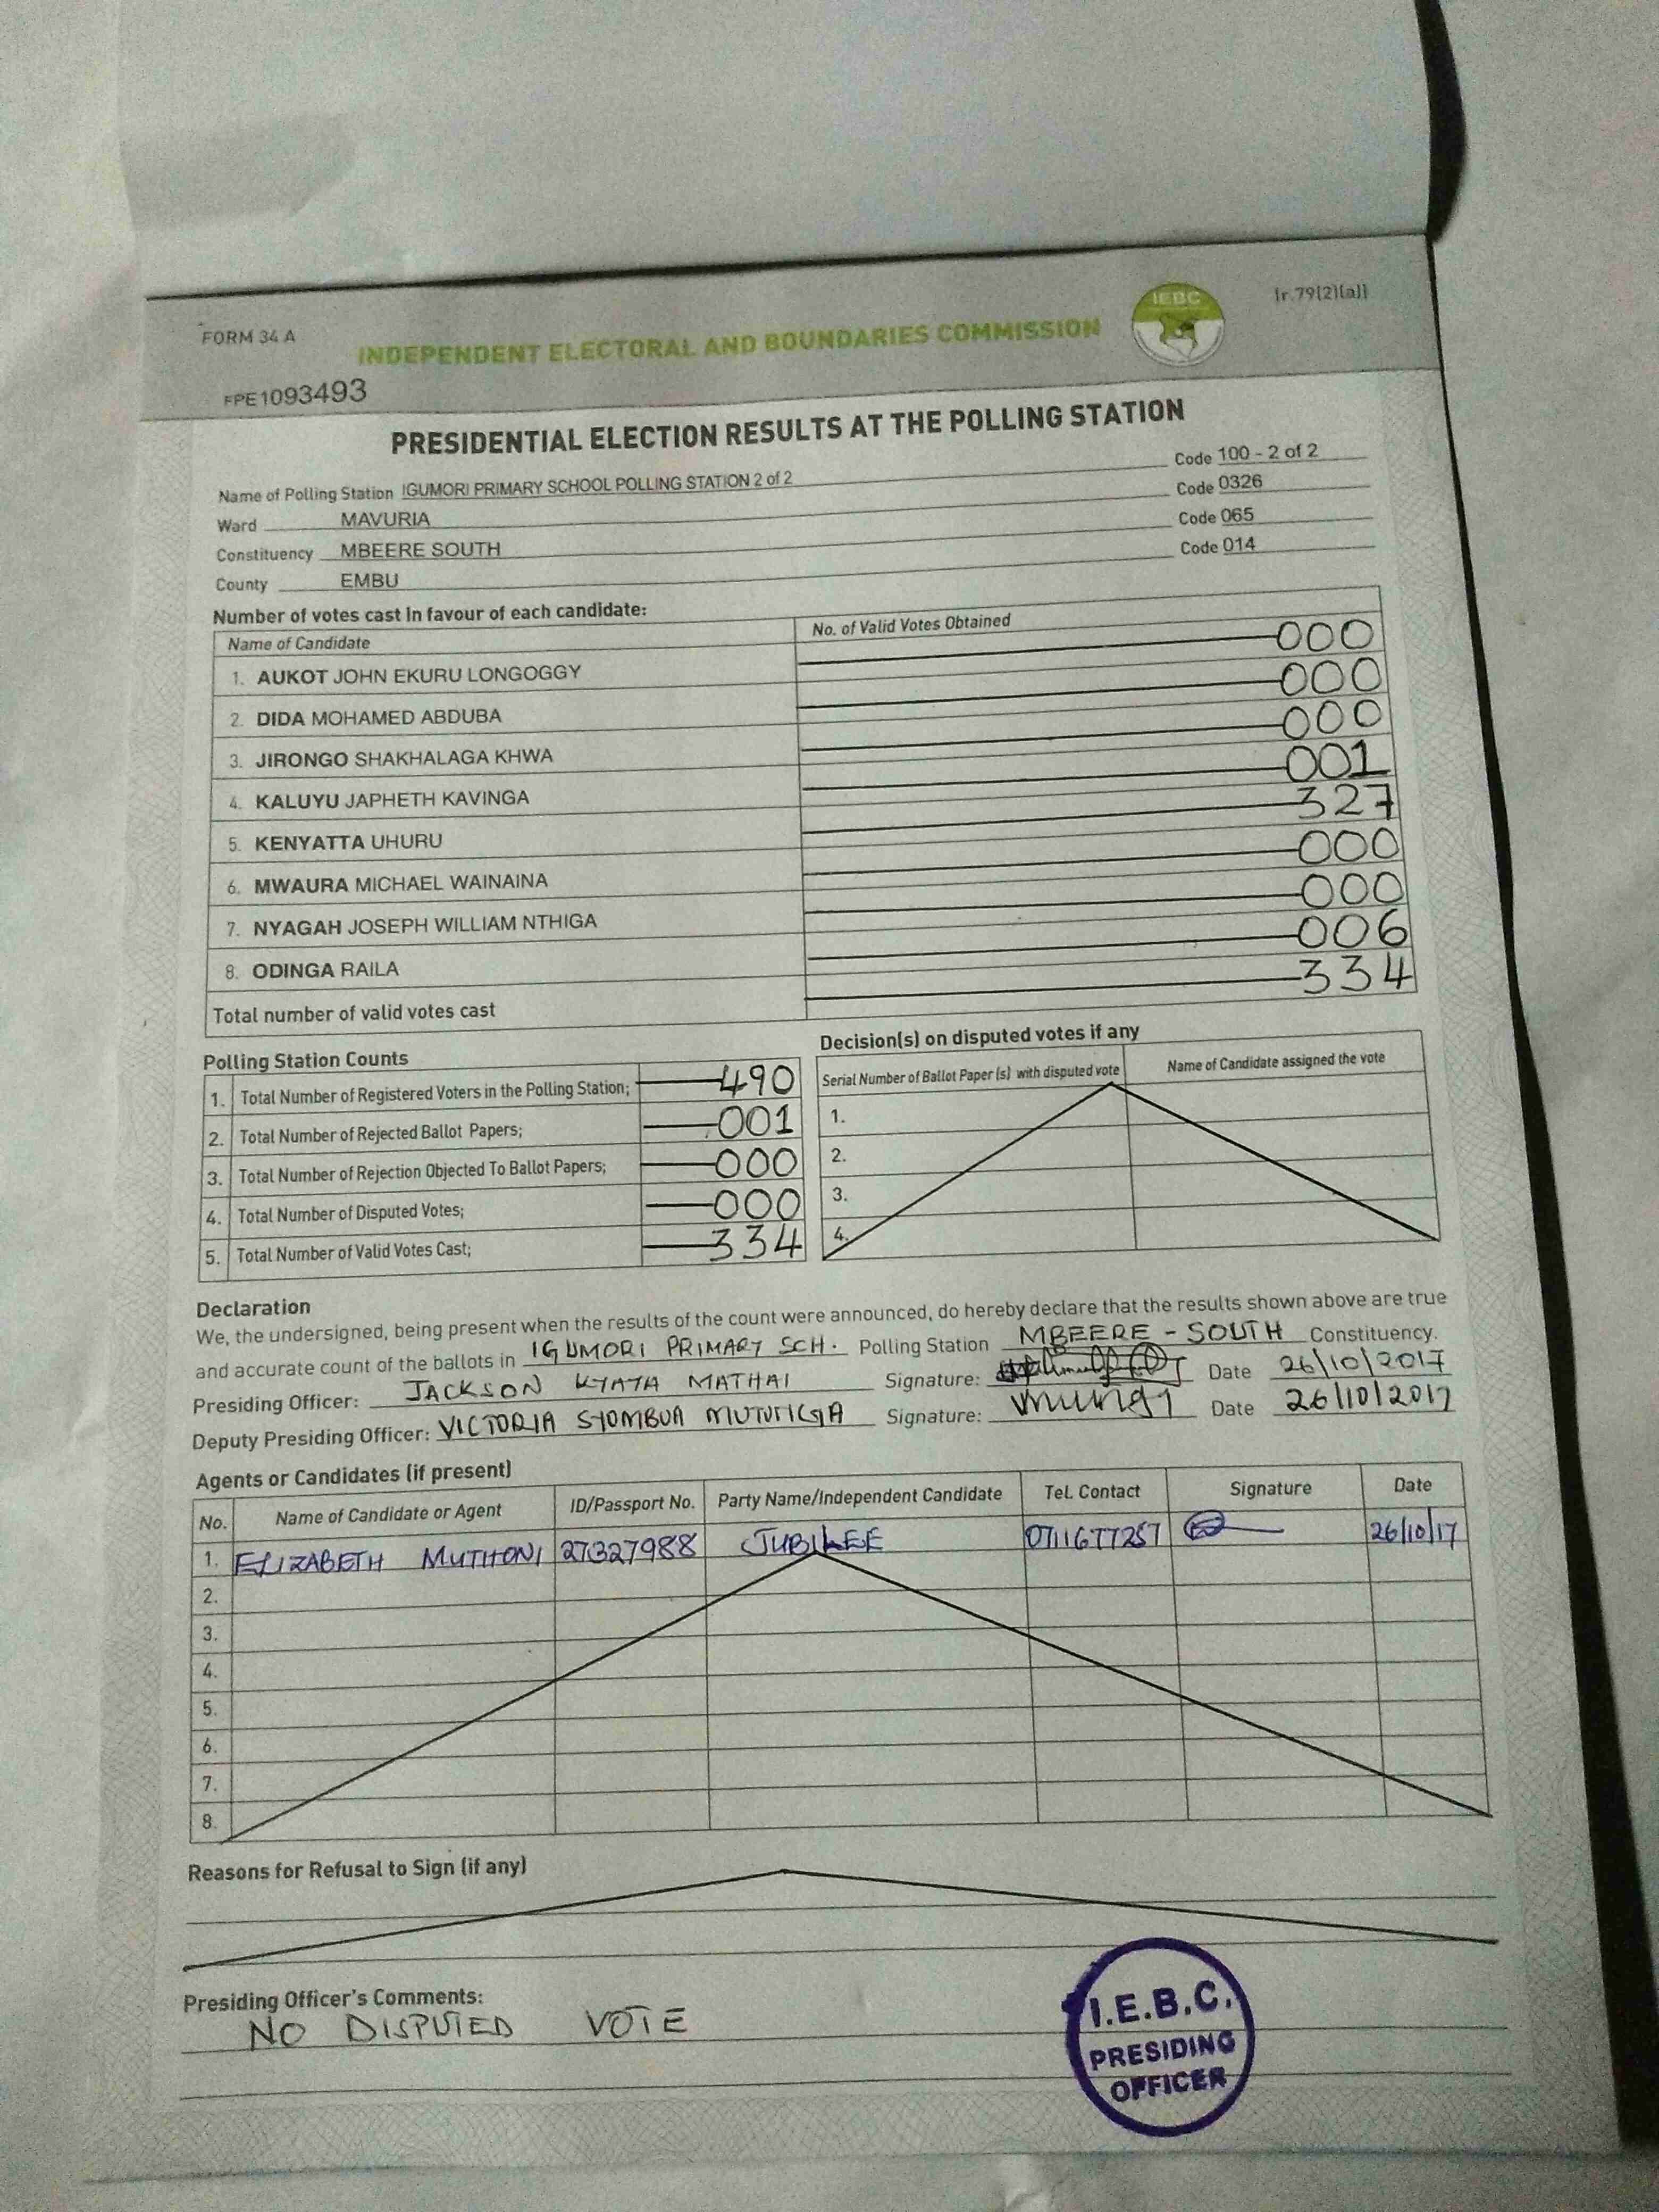 [r.79(2)(a)]
FORM 34 A
INDEPENDENT ELECTORAL AND BOUNDARIES COMMISSION
IEBC
FPE1093493
PRESIDENTIAL ELECTION RESULTS AT THE POLLING STATION
Name of Polling Station IGUMORI PRIMARY SCHOOL POLLING STATION 2 of 2 Code 100 - 2 of 2
Ward MAVURIA Code 0326
Constituency MBEERE SOUTH Code 065
County EMBU Code 014
Number of votes cast in favour of each candidate:
Name of Candidate No. of Valid Votes Obtained
1. AUKOT JOHN EKURU LONGOGGY 000
2. DIDA MOHAMED ABDUBA 000
3. JIRONGO SHAKHALAGA KHWA 000
4. KALUYU JAPHETH KAVINGA 001
5. KENYATTA UHURU 327
6. MWAURA MICHAEL WAINAINA 000
7. NYAGAH JOSEPH WILLIAM NTHIGA 000
8. ODINGA RAILA 006
Total number of valid votes cast 334
Polling Station Counts
1. Total Number of Registered Voters in the Polling Station; 490
2. Total Number of Rejected Ballot Papers; 001
3. Total Number of Rejection Objected To Ballot Papers; 000
4. Total Number of Disputed Votes; 000
5. Total Number of Valid Votes Cast; 334
Decision(s) on disputed votes if any
Serial Number of Ballot Paper (s) with disputed vote Name of Candidate assigned the vote
1.
2.
3.
4.
Declaration
We, the undersigned, being present when the results of the count were announced, do hereby declare that the results shown above are true
and accurate count of the ballots in IGUMORI PRIMARY SCH. Polling Station MBEERE - SOUTH Constituency.
Presiding Officer: JACKSON KYATA MATHAI Signature: Date 26/10/2017
Deputy Presiding Officer: VICTORIA SYOMBUA Signature: Date 26/10/2017
Agents or Candidates (if present)
No. Name of Candidate or Agent ID/Passport No. Party Name/Independent Candidate Tel. Contact Signature Date
1. ELIZABETH MUTHONI 27327988 JUBILEE 0711677257 26/10/17
2.
3.
4.
5.
6.
7.
8.
Reasons for Refusal to Sign (if any)
Presiding Officer's Comments:
NO DISPUTED VOTE
I.E.B.C.
PRESIDING
OFFICER